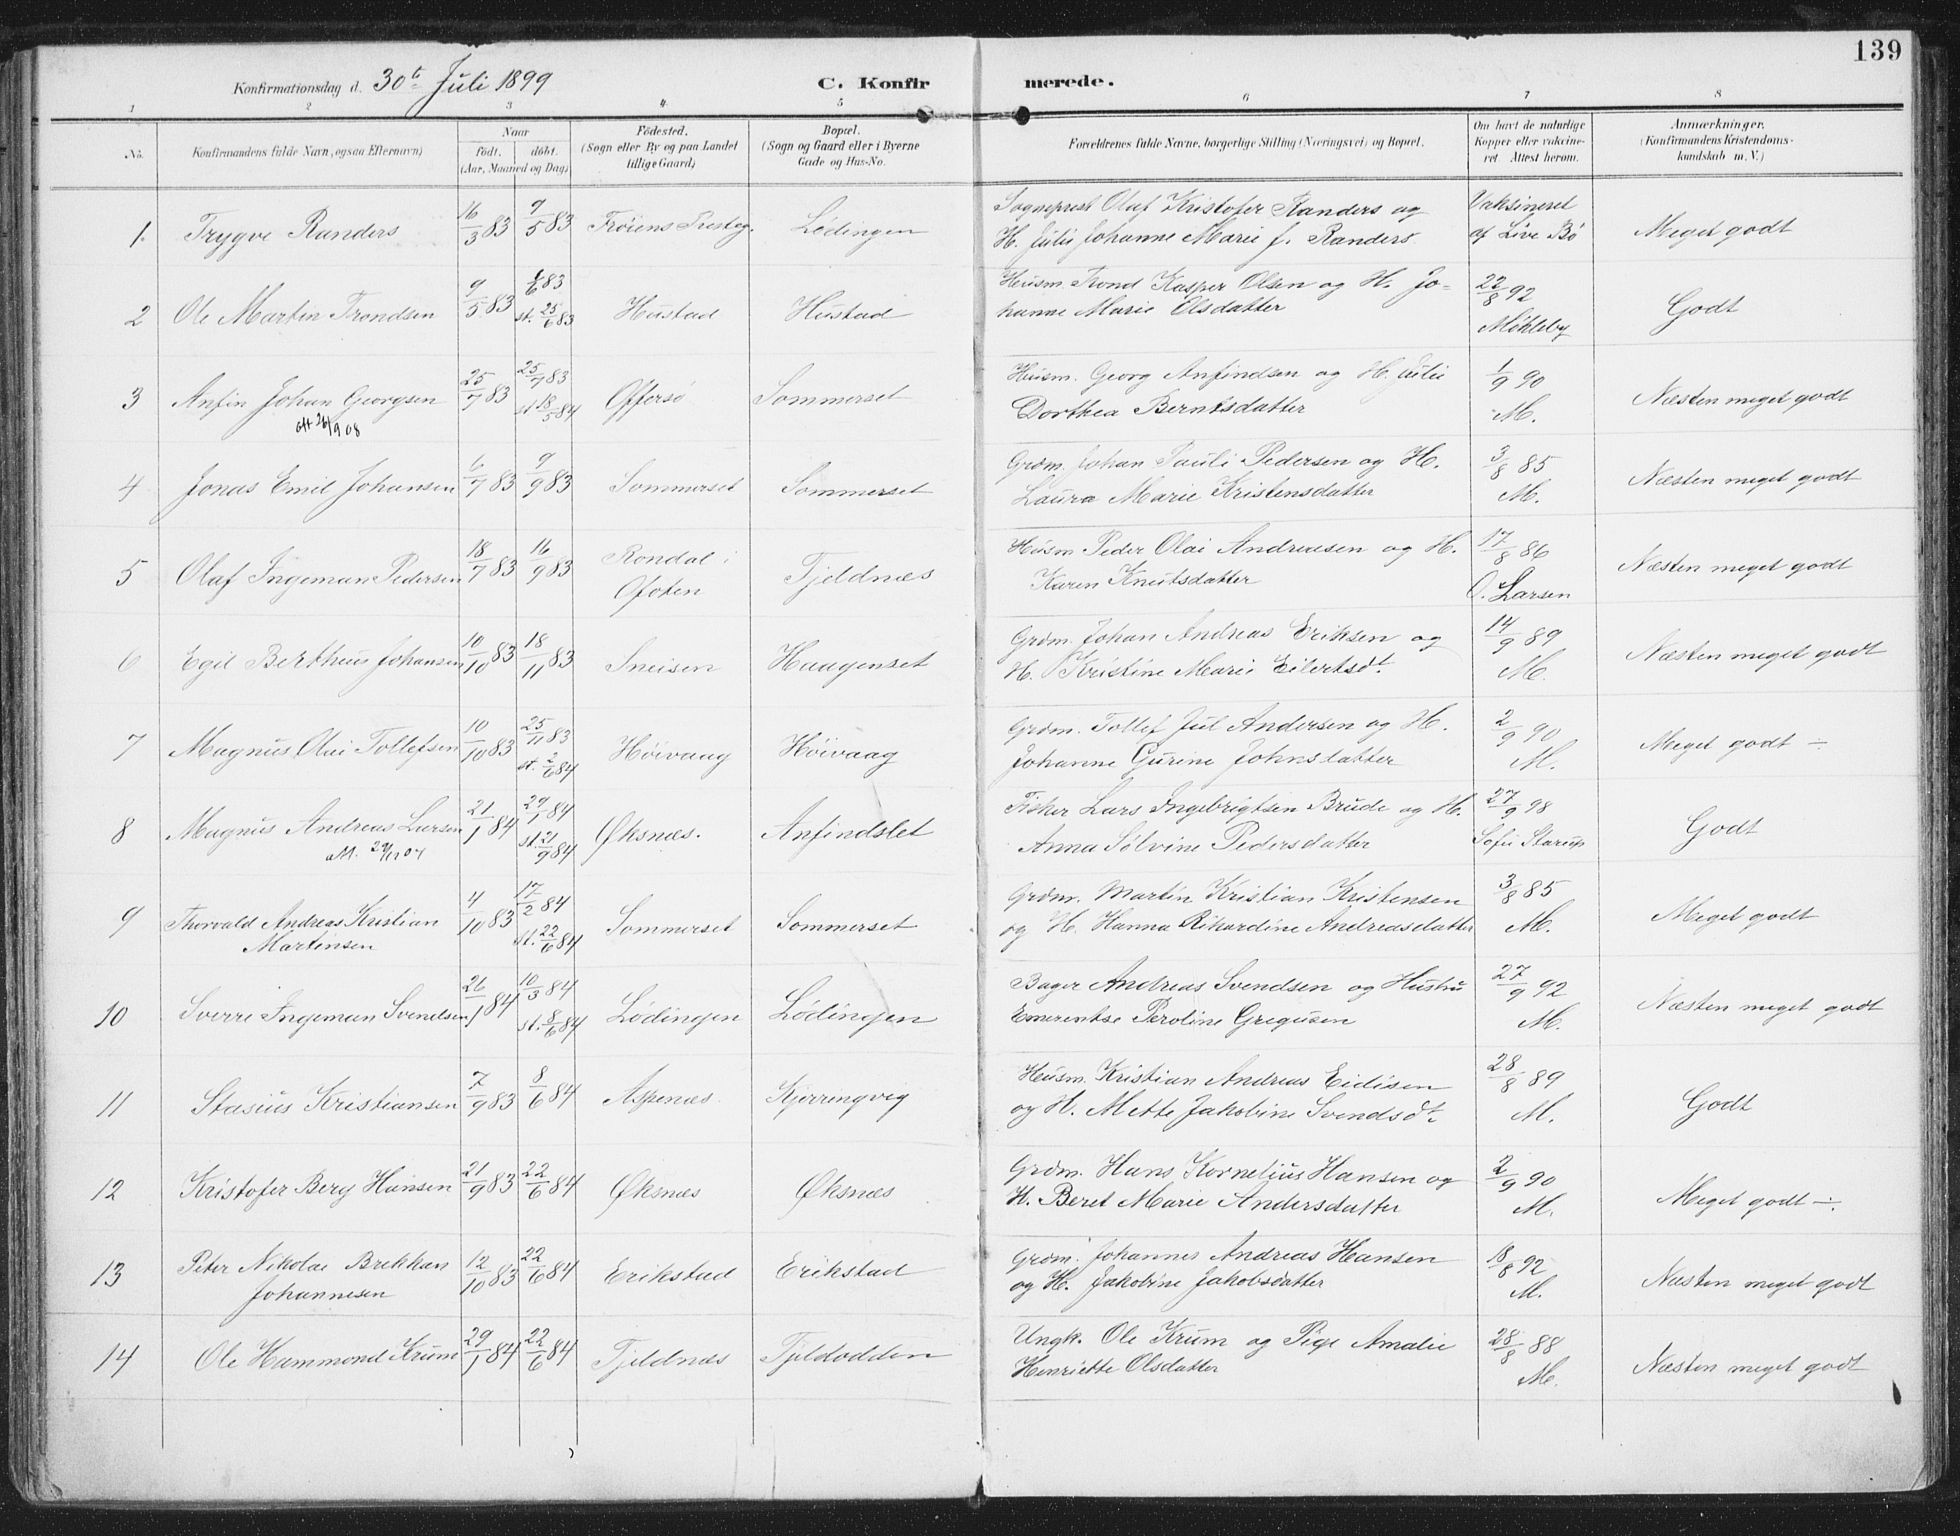 139
Konfirmationsdag d. 30te Juli 1899
C. Konfirmerede.
1 2 3 4 5 6 7 8
No. Konfirmandens fulde Navn, ogsaa Efternavn) Naar Födt. döbt. (Aar, Maaned og Dag) Födested. (Sogn eller By og paa Landet tillige Gaard) Bopæl. (Sogn og Gaard eller i Byerne Gade og Hus-No. Forældrenes fulde Navne, borgerlige Stilling (Næringsvei) og Bopæl. Om havt de naturlige Kopper eller vakcineret. Attest herom. Anmærkninger. (Konfirmandens Kristendomskundskab m. V.)
1. Trygve Randers 16/3 83 9/5 83 Lödingen Sogneprest Olaf Kristofer Randers og Vaksineret Meget godt
H. Julie Johanne Marie f. Randers af Live Bö
2 Ole Martin Trondsen 9/5 83 83 st. 25/6 83 Hustad Hustad Husm. Trond Kasper Olsen og H. Jo- 22/8 92 Godt
hanne Marie Olsdatter
3 Anfin Johan Georgsen 25/7 83 25/7 83 st 18/5 84 Offersö Sommerset Husm. Georg Anfindsen og H. Julie 1/9 90 Næsten meget godt
Dorthea Berntsdatter M.
4 Jonas Emil Johansen 6/7 83 9/9 83 Sommerset Sommerset Grdm. Johan Pauli Pedersen og H. 3/8 85 Næsten meget godt
Laura Marie Kristensdatter M.
5 Olaf Ingeman Pedersen 18/7 83 16/9 83 Rondal i Ofoten Tjeldnæs Husm. Peder Olai Andreasen og H. 17/8 86 Næsten meget godt
Karen Knutsdatter O. Larsen
6 Egil Bertheus Johansen 10/10 83 18/11 83 Sneisen Haagenset Grdm. Johan Andreas Eriksen og 14/9 89 Næsten meget godt
H. Kristine Marie Eilertsdt. M.
7 Magnus Olai Tollefsen 10/10 83 25/11 83 st. 2/6 84 Höivaag Höivaag Grdm. Tollef Jul Andersen og H. 2/9 90 Meget godt ÷
Johanne Gurine Johnsdatter M.
8 Magnus Andreas Larsen 21/1 84 29/1 84 st. 21/9 84 Øksnæs. Anfindslet Fisker Lars Ingebrigtsen Brude og H. 27/9 98 Godt
Anna Sölvine Pedersdatter Sofie Starup
9 Thorvald Andreas Kristian 4/10 83 17/2 84 st. 22/6 84 Sommerset Sommerset Grdm. Martin Kristian Kristensen 3/8 85 Meget godt
Martinsen og H. Hanna Rikardine Andreasdatter M.
10 Sverre Ingeman Svendsen 26/1 84 10/3 84 st. 8/6 84 Lödingen Lödingen Bager Andreas Svendsen og Hustru 27/9 92 Næsten meget godt
Emerentse Peroline Gregusen M.
11 Stasius Kristiansen 7/9 83 8/6 84 Aspenæs. Kjerringvig Husm. Kristian Andreas Eidisen 28/8 89 Godt
og H. Mette Jakobine Svendsdt. M.
12 Kristofer Berg Hansen 21/9 83 22/6 84 Øksnæs Øksnæs Grdm. Hans Kornelius Hansen og 2/9 90 Meget godt ÷
H. Beret Marie Andersdatter M.
13 Peter Nikolai Brekkan 12/10 83 22/6 84 Erikstad Erikstad Grdm. Johannes Andreas Hansen 18/8 92 Næsten meget godt
Johannesen og H. Jakobine Jakobsdatter M.
14 Ole Hammond Krum 29/1 84 22/6 84 Tjeldnæs Tjeldodden Ungk. Ole Krum og Pige Amalie 28/8 88 Næsten meget godt
Henriette Olsdatter M.